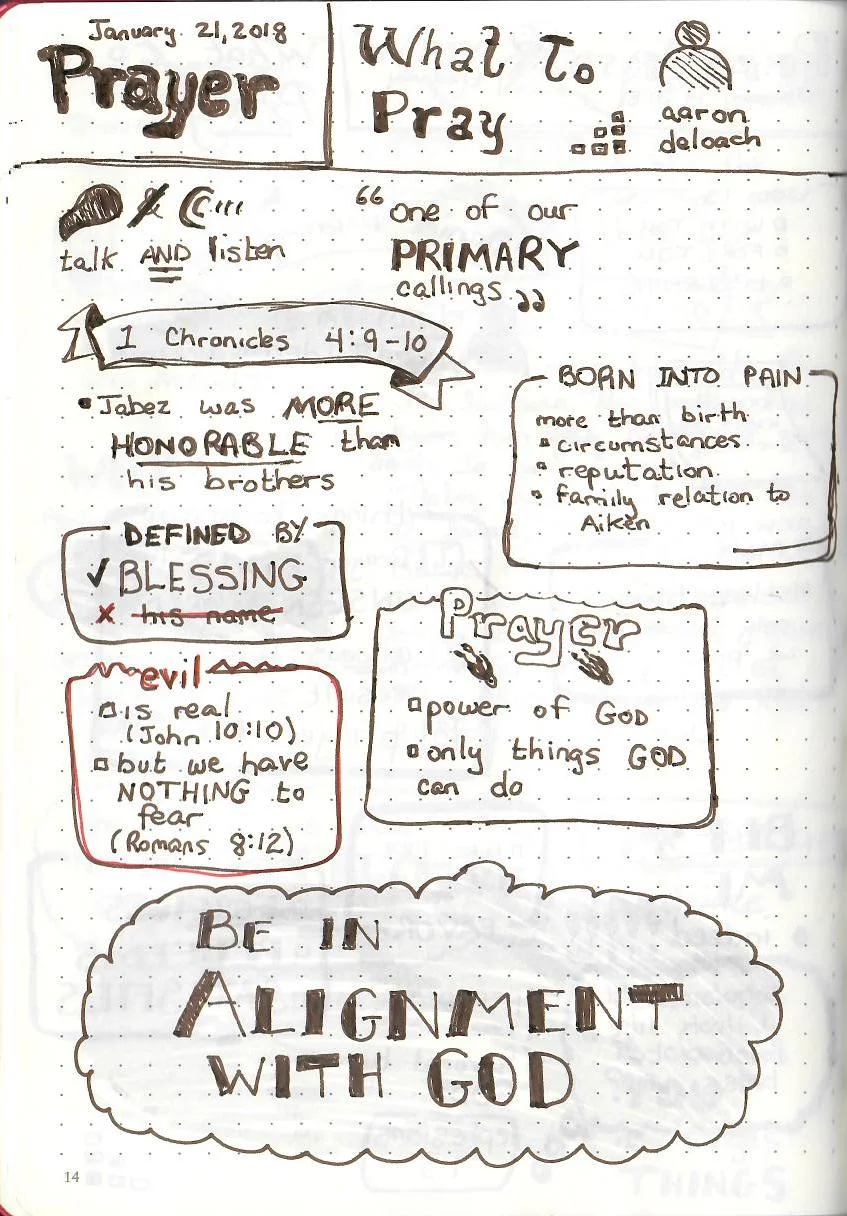 January 21, 2018
Prayer
What To
Pray
aaron
deloach
talk AND listen
“ one of our
PRIMARY
callings ”
1 Chronicles 4:9-10
• Jabez was MORE
HONORABLE than
his brothers
BORN INTO PAIN
more than birth
▪ circumstances
▪ reputation
▪ family relation to
Aiken
DEFINED BY
✓ BLESSING
x his name
evil
□ is real
(John 10:10)
□ but we have
NOTHING to
fear
(Romans 8:12)
Prayer
□ power of GOD
□ only things GOD
can do
BE IN
ALIGNMENT
WITH GOD
14